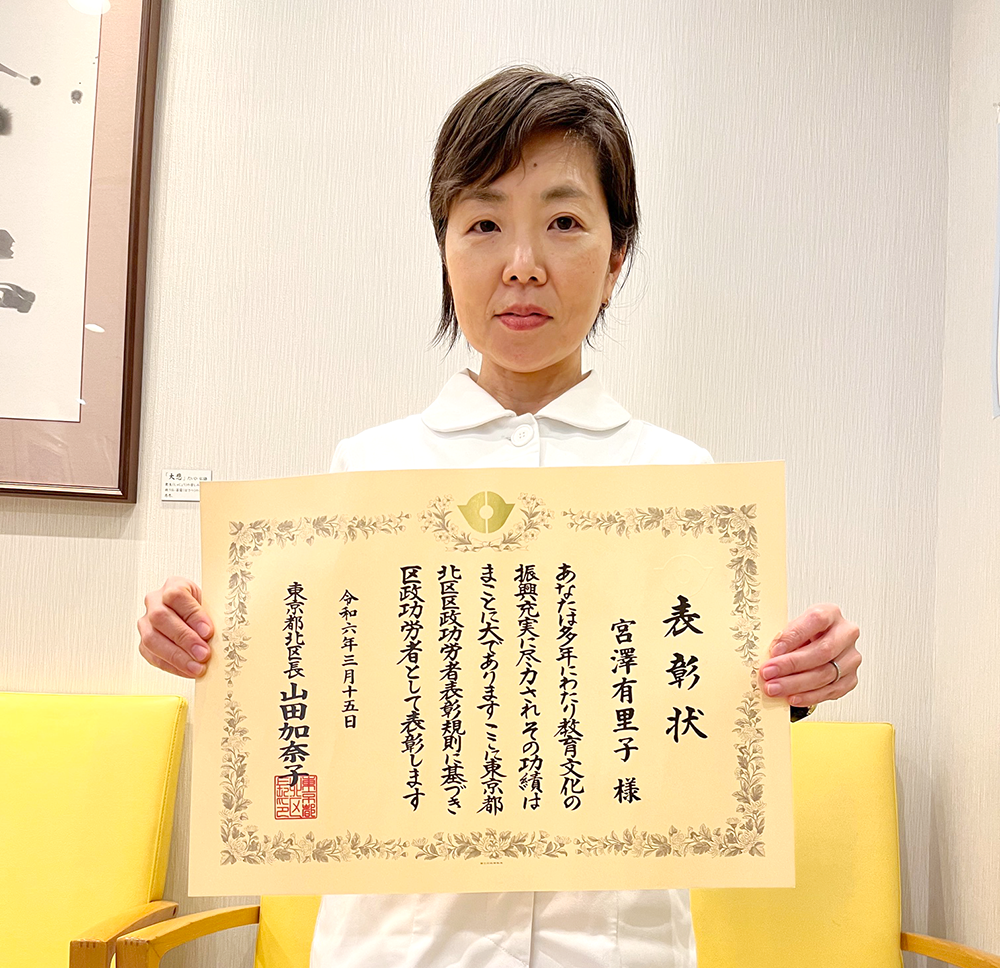 表彰状
宮澤有里子 様
あなたは多年にわたり教育文化の
振興充実に尽力されその功績は
まことに大であります ここに東京都
北区区政功労者表彰規則に基づき
区政功労者として表彰します
令和六年三月十五日
東京都北区長 山田加奈子
東京都
北区
長之印
「大悲」